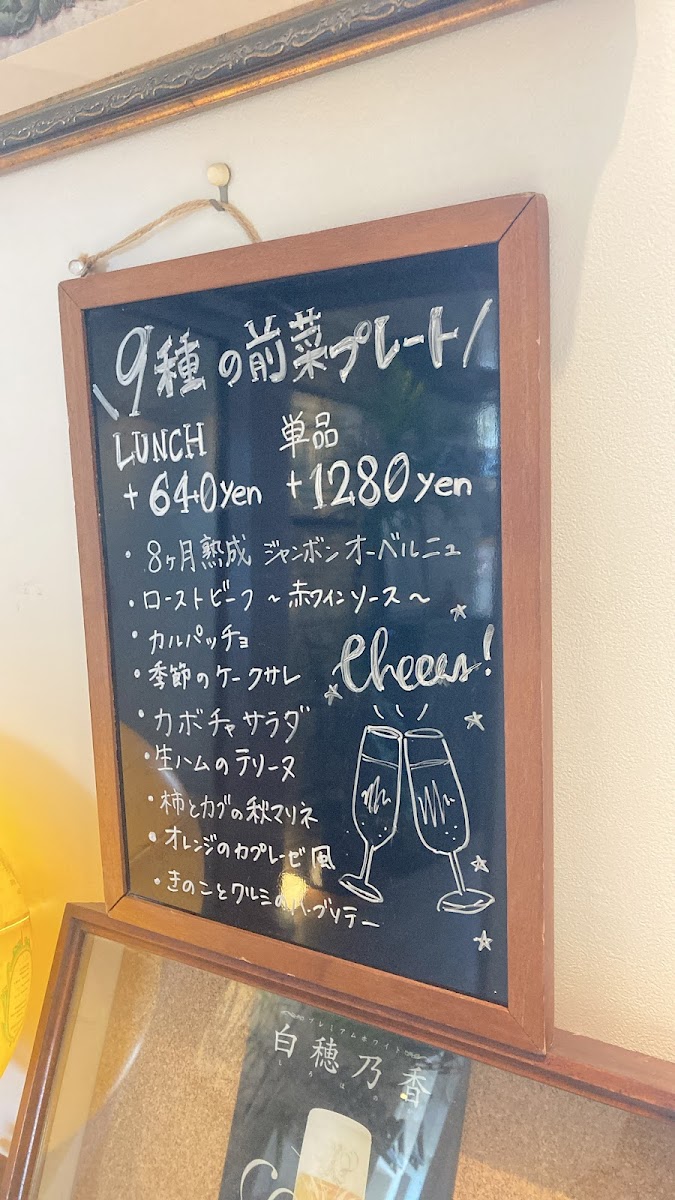 \9種の前菜プレート/
LUNCH 単品
+640yen +1280yen
・8ヶ月熟成 ジャンボンオーベルニュ
・ローストビーフ ～赤ワインソース～
・カルパッチョ
・季節のケークサレ
Cheers!
・カボチャサラダ
・生ハムのテリーヌ
・柿とカブの秋マリネ
・オレンジのカプレーゼ風
・きのことクルミの
プレミアムホワイト
白穂乃香